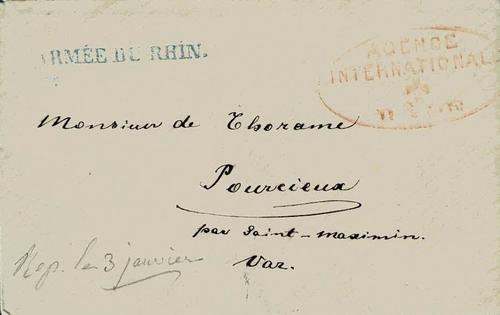 ARMÉE DU RHIN.
AGENCE
INTERNATIONALE
Monsieur de Thorame
Pourcieux
par Saint-Maximin.
Var.
Rep. le 3 janvier